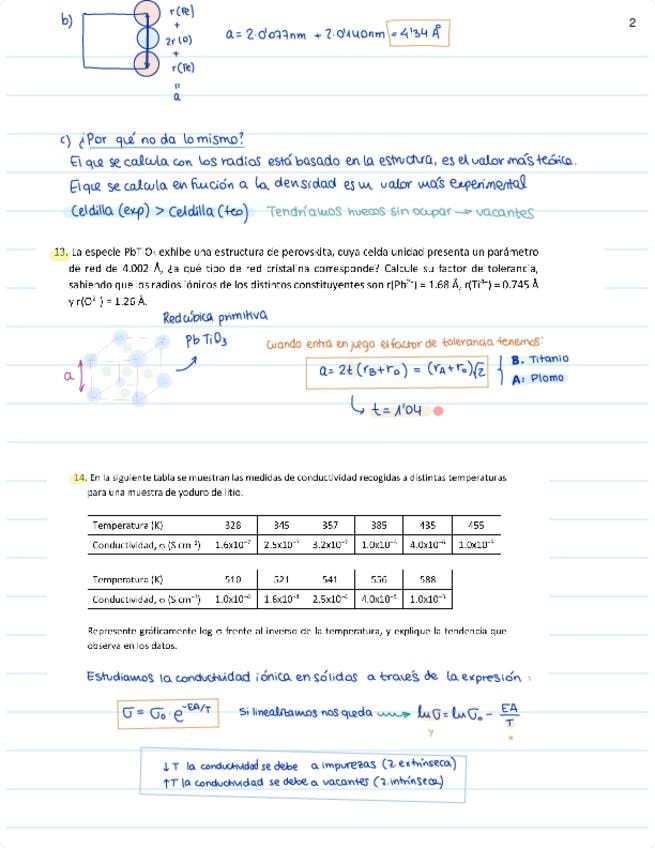 2
b)
r(Fe)
+
2r(O)
+
r(Fe)
=
a
a = 2·0'077nm + 2·0'140nm = 4'34 Å
c) ¿Por qué no da lo mismo?
El que se calcula con los radios está basado en la estructura, es el valor más teórico.
El que se calcula en función a la densidad es un valor más experimental
Celdilla (exp) > Celdilla (teo) Tendríamos huecos sin ocupar → vacantes
13. La especie PbTiO₃ exhibe una estructura de perovskita, cuya celda unidad presenta un parámetro
de red de 4.002 Å, ¿a qué tipo de red cristalina corresponde? Calcule su factor de tolerancia,
sabiendo que los radios iónicos de los distintos constituyentes son r(Pb²⁺) = 1.68 Å, r(Ti⁴⁺) = 0.745 Å
y r(O²⁻) = 1.26 Å.
Red cúbica primitiva
PbTiO₃
a
Cuando entra en juego el factor de tolerancia tenemos:
a = 2t (rB + rO) = (rA + rO)√2
B. Titanio
A: Plomo
↳ t = 1'04
14. En la siguiente tabla se muestran las medidas de conductividad recogidas a distintas temperaturas
para una muestra de yoduro de litio.
Temperatura (K) 328 345 357 385 435 455
Conductividad, σ (S cm⁻¹)
Temperatura (K) 510 521 541 556 588
Conductividad, σ (S cm⁻¹)
Represente gráficamente log σ frente al inverso de la temperatura, y explique la tendencia que
observa en los datos.
Estudiamos la conductividad iónica en sólidos a través de la expresión :
σ = σ₀ · e^-EA/T Si linealizamos nos queda → lnσ = lnσ₀ - EA/T
y x
↓T la conductividad se debe a impurezas (z. extrínseca)
↑T la conductividad se debe a vacantes (z. intrínseca)